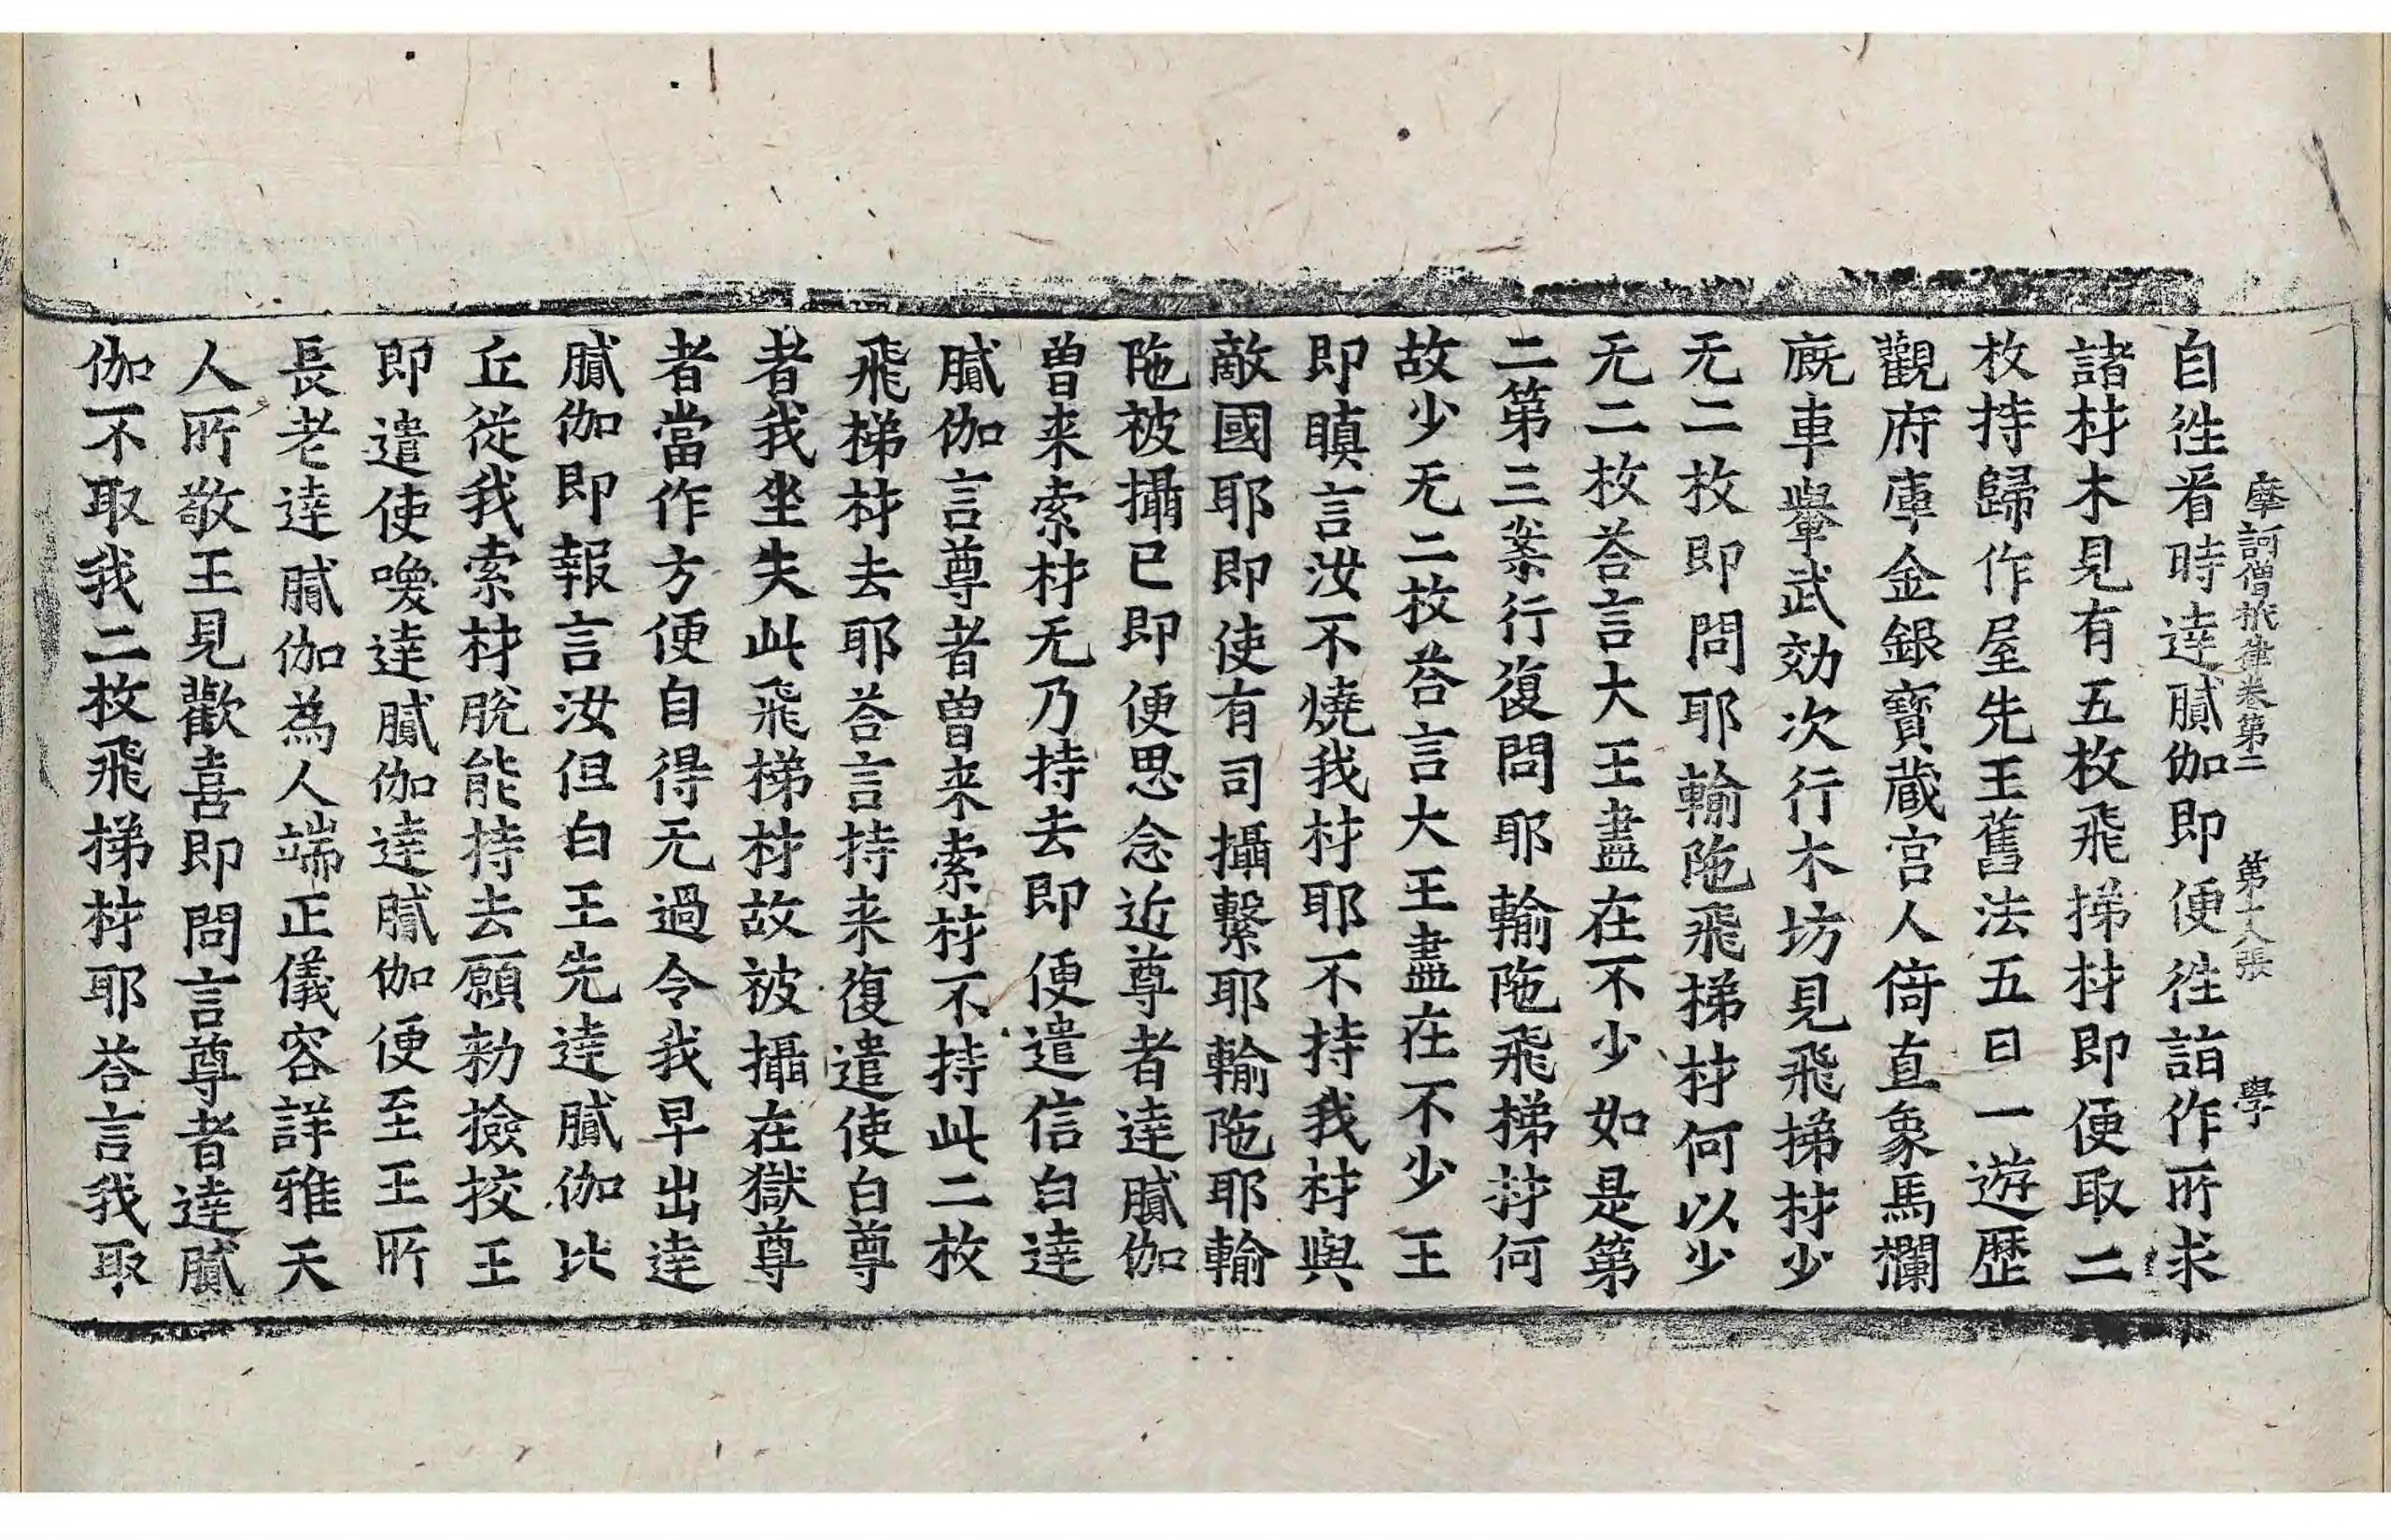 摩訶僧祇律卷第二 第十八張 學
自往看時達膩伽即便往詣作所求
諸材木見有五枚飛梯材即便取二
枚持歸作屋先王舊法五日一遊歷
觀府庫金銀寶蔵宫人倚直象馬欄
廐車轝武効次行木坊見飛梯材少
无二枚即問耶輸陁飛梯材何以少
无二枚荅言大王盡在不少如是第
二第三案行復問耶輸陁飛梯材何
故少无二枚荅言大王盡在不少王
即瞋言汝不燒我材耶不持我材與
敵國耶即使有司攝繫耶輸陁耶輸
陁被攝已即便思念近尊者達膩伽
曽来索材无乃持去即便遣信白達
膩伽言尊者曽来索材不持此二枚
飛梯材去耶荅言持来復遣使白尊
者我坐失此飛梯材故被攝在獄尊
者當作方便自得无過令我早出達
膩伽即報言汝但白王先達膩伽比
丘從我索材脫能持去願勑撿挍王
即遣使喚達膩伽達膩伽便至王所
長老達膩伽為人端正儀容詳雅天
人所敬王見歡喜即問言尊者達膩
伽不取我二枚飛梯材耶荅言我取